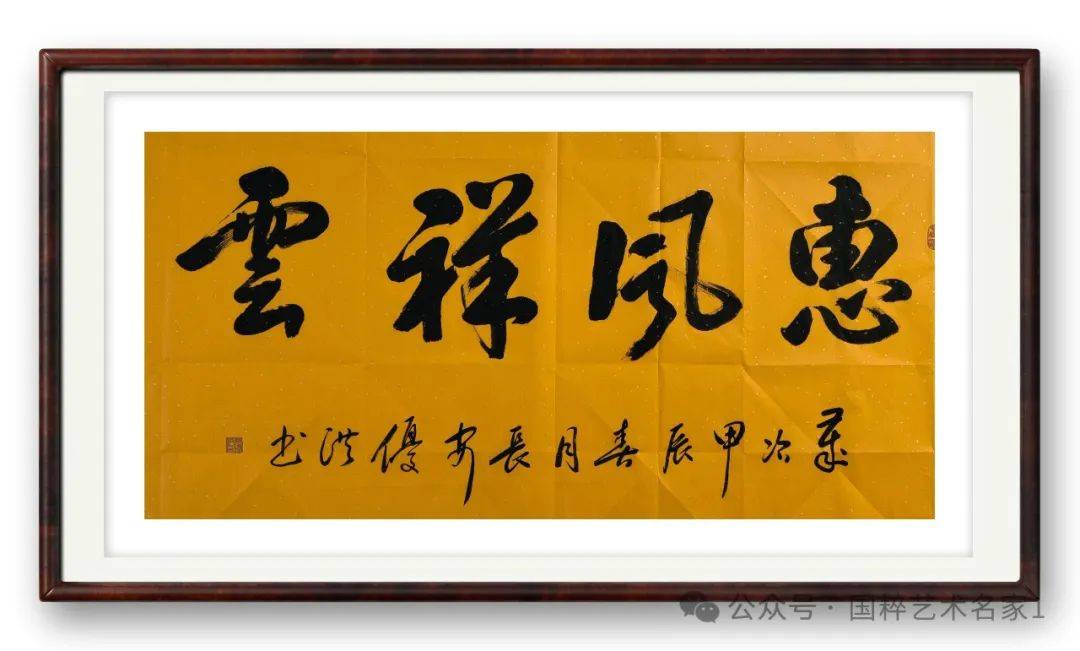 惠風祥雲
歲次甲辰春月長安優洪书
公众号 · 国粹艺术名家1